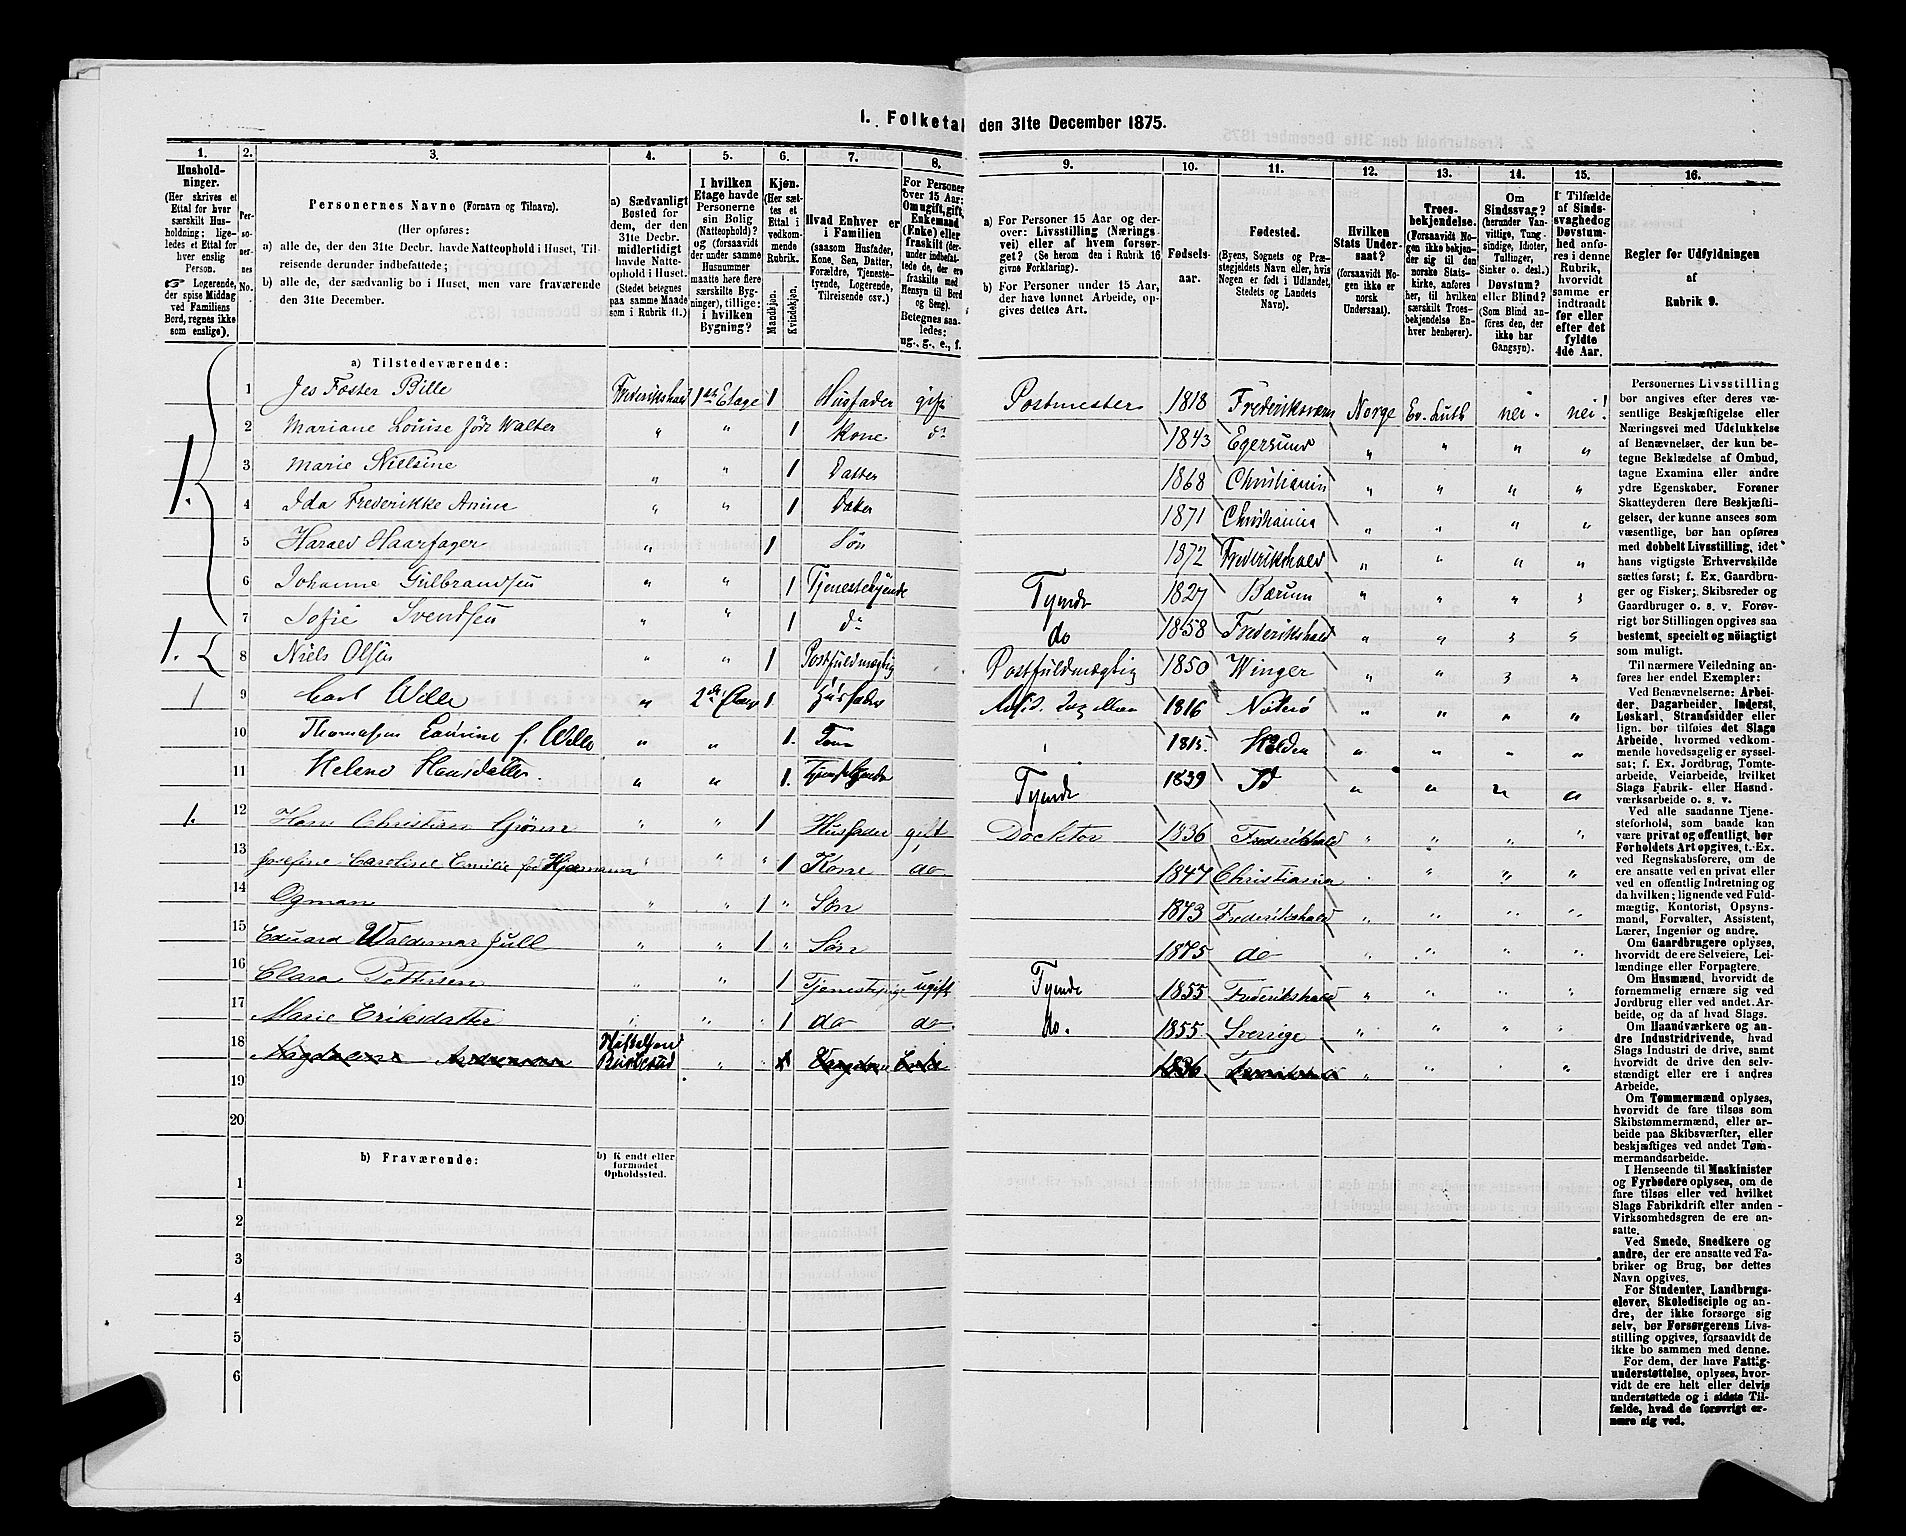 1. Folketal den 31te December 1875.
1. 2. 3. 4. 5. 6. 7. 8. 9. 10. 11. 12. 13. 14. 15. 16.
Hushold-
ninger.
(Her skrives et
Ettal for hver
særskilt Hus-
holdning; lige-
ledes et Ettal for
hver enslig
Person.
☞ Logerende,
der spise Middag
ved Familiens
Bord, regnes ikke
som enslige).
Per-
so-
ner-
nes
No.
Personernes Navne (Fornavn og Tilnavn).
(Her opføres:
a) alle de, der den 31te Decbr. havde Natteophold i Huset, Til-
reisende derunder indbefattede;
b) alle de, der sædvanlig bo i Huset, men vare fraværende
den 31te December.
a) Sædvanligt
Bosted for
dem, der den
31te Decbr.
midlertidigt
havde Natte-
ophold i Huset.
(Stedet betegnes
paa samme Maade
som i Rubrik 11.)
I hvilken
Etage havde
Personerne
sin Bolig
(Natteophold)?
og (forsaavidt
der under samme
Husnummer
maatte høre flere
særskilte Byg-
ninger), tillige:
i hvilken
Bygning?
Kjøn.
(Her sæt-
tes et
Ettal i
vedkom-
mende
Rubrik.
Mandkjøn.
Kvindekjøn.
Hvad Enhver er
i Familien
(saasom Husfader,
Kone, Søn, Datter,
Forældre, Tjeneste-
tyende, Logerende,
Tilreisende osv.)
For Personer
over 15 Aar:
Om ugift, gift,
Enkemand
(Enke) eller
fraskilt (der-
under indbefat-
tede de, der ere
fraskilte med
Hensyn til Bord
og Seng).
Betegnes saa-
ledes:
ug., g., e., f.
a) For Personer 15 Aar og der-
over: Livsstilling (Nærings-
vei) eller af hvem forsør-
get? (Se herom den i Rubrik 16
givne Forklaring).
b) For Personer under 15 Aar,
der have lønnet Arbeide, op-
gives dettes Art.
Fødsels-
aar.
Fødested.
(Byens, Sognets og Præ-
stegjeldets Navn eller, hvis
Nogen er født i Udlandet,
Stedets og Landets
Navn).
Hvilken
Stats Under-
saat?
(forsaavidt No-
gen ikke er
norsk
Undersaat).
Troes-
bekjendelse.
(Forsaavidt No-
gen ikke bekjen-
der sig til den
norske Stats-
kirke, anføres
her, til hvilken
særskilt Troes-
bekjendelse En-
hver henhører).
Om
Sindssvag?
(herunder Van-
vittige, Tung-
sindige, Idioter,
Tullinger,
Sinker o. desl.)
Døvstum?
eller Blind?
(Som Blind an-
føres den, der
ikke har
Gangsyn).
I Tilfælde
af Sinds-
svaghed og
Døvstum-
hed anfø-
res i denne
Rubrik,
hvorvidt
samme er
indtraadt
før eller
efter det
fyldte
4de Aar.
Regler for Udfyldningen
af
Rubrik 9.
a) Tilstedeværende:
1 Jes Foster Bille Frederikshald 1ste Etage 1 Husfader gift Postmester 1818 Frederiksværn Norge Ev. Luth nei nei!
1. 2 Mariane Louise født Walter " " 1 Kone do 1843 Egersund " " " "
3 Marie Nielsine " " 1 Datter 1868 Christiania " " " "
4 Ida Frederikke Anine " " 1 Dater 1871 Christiania " " " "
5 Harald Haarfager " 1 Søn 1872 Frederikshald " " " "
6 Johanne Gulbrandsen " " 1 Tjenestetyende Tyende 1827 Bærum " " " "
7 Sofie Svendsen " " 1 do do 1858 Frederikshald " " " "
1. 8 Niels Olsen " " 1 Postfuldmægtig Postfuldmægtig 1850 Winger " " " "
1 9 Carl Wille " 2den Etage 1 Husfader 1816 " " " "
10 Thomasen Laurine f. Wille " " 1. 1815 " " " "
11 Helene Hansdatter. " " 1. Tyende 1839 Id " " " "
1. 12 Hans Christian " " 1 Husfader gift Docktor 1836 Frederikshald " " " "
13 Josefine Caroline Emilie født " " " 1 Kone do 1847 Christiania " " "
14 Ogman " " 1 " Søn 1873 Frederikshald " " " "
15 Eduard Waldemar Jull " " 1 " Søn 1875 do " " " "
16 Clara Pettersen " " 1 Tjenestepige ugift Tyende 1855 Frederikshald " " " "
17 Marie Eriksdatter " " 1 do do. do. 1855 Sverrige " " " "
18 " 1836 " " " "
19
20
b) Fraværende:
b) Kjendt eller
formodet
Opholdssted.
1
2
3
4
5
6
Personernes Livsstilling
bør angives efter deres væ-
sentlige Beskjæftigelse eller
Næringsvei med Udelukkelse
af Benævnelser, der kun be-
tegne Beklædelse af Ombud,
tagne Examina eller andre
ydre Egenskaber. Forener
Skatteyderen flere Beskjæfti-
gelser, der kunne ansees som
væsentlige, bør han opføres
med dobbelt Livsstilling, idet
hans vigtigste Erhvervskilde
sættes først; f. Ex. Gaardbru-
ger og Fisker; Skibsreder og
Gaardbruger o. s. v. Forøv-
rigt bør Stillingen opgives saa
bestemt, specielt og nøiagtigt
som muligt.
Til nærmere Veiledning an-
føres her endel Exempler:
Ved Benævnelserne: Arbei-
der, Dagarbeider, Inderst,
Løskarl, Strandsidder eller
lign. bør tilføies det Slags
Arbeide, hvormed vedkom-
mende hovedsagelig er syssel-
sat; f. Ex. Jordbrug, Tomte-
arbeide, Veiarbeide, hvilket
Slags Fabrik- eller Haand-
værksarbeide o. s. v.
Ved alle saadanne Tje-
nesteforhold, som baade kan
være privat og offentligt, bør
Forholdets Art opgives, t. Ex.
ved Regnskabsførere, om de
ere ansatte ved en privat eller
ved en offentlig Indretning og
da hvilken; lignende ved Fuld-
mægtig, Kontorist, Opsyns-
mand, Forvalter, Assistent,
Lærer, Ingeniør og andre.
Om Gaardbrugere oplyses,
hvorvidt de ere Selveiere, Lei-
lændinge eller Forpagtere.
Om Husmænd, hvorvidt de
fornemmelig ernære sig ved
Jordbrug eller ved andet Ar-
beide, og da af hvad Slags.
Om Haandværkere og an-
dre Industridrivende, hvad
Slags Industri de drive, samt
hvorvidt de drive den selv-
stændigt eller ere i andres
Arbeide.
Om Tømmermænd oplyses,
hvorvidt de fare tilsøs som
Skibstømmermænd, eller ar-
beide paa Skibsværfter, eller
beskjæftiges ved andet Tøm-
mermandsarbeide.
I Henseende til Maskinister
og Fyrbødere oplyses, om de
fare tilsøs eller ved hvilket
Slags Fabrikdrift eller anden
Virksomhedsgren de ere an-
satte.
Ved Smede, Snedkere og
andre, der ere ansatte ved Fa-
briker og Brug, bør dettes
Navn opgives.
For Studenter, Landbrugs-
elever, Skoledisciple og an-
dre, der ikke forsørge sig
selv, bør Forsørgerens Livs-
stilling opgives, forsaavidt de
ikke bo sammen med denne.
For dem, der have Fattig-
understøttelse, oplyses, hvor-
vidt de ere helt eller delvis
understøttede og i sidste Til-
fælde, hvad de forøvrigt er-
nære sig ved.